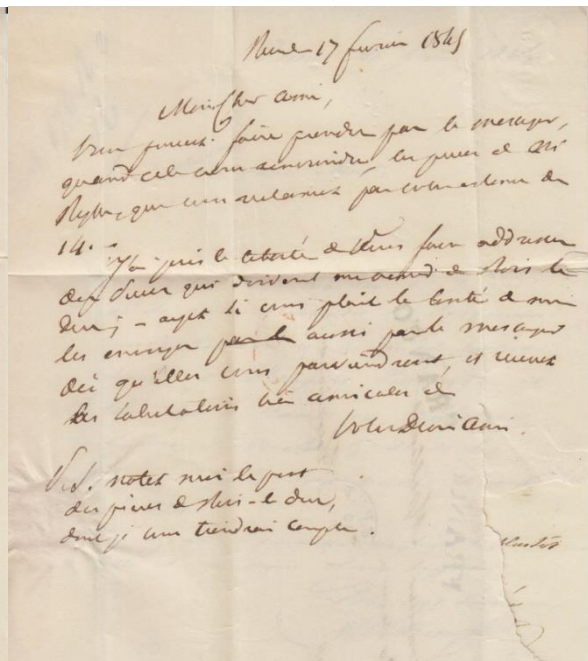 17 février 1845
Mon Cher ami,
Vous pouvez faire prendre par le messager,
quand cela vous conviendra les pièces de
que vous réclamez par votre lettre du
14. -
J'ai pris la liberté de vous faire addresser
des pièces qui doivent me venir de
- ayez s'il vous plait la bonté de me
les envoyer aussi par le messager
dès qu'elles vous parviendront, et recevez
les salutations bien amicales de
votre ami.
P.S. notez moi le port
des pièces de - le duc,
dont je vous tiendrai compte.